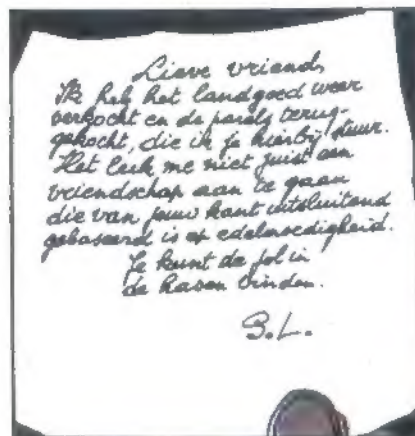 Lieve vriend,
Ik heb het landgoed weer
verkocht en de parels terug-
gekocht, die ik je hierbij stuur.
Het leek me niet juist een
vriendschap aan te gaan
die van jouw kant uitsluitend
gebaseerd is op edelmoedigheid.
Je kunt de jol in
de haven vinden.
B.L.